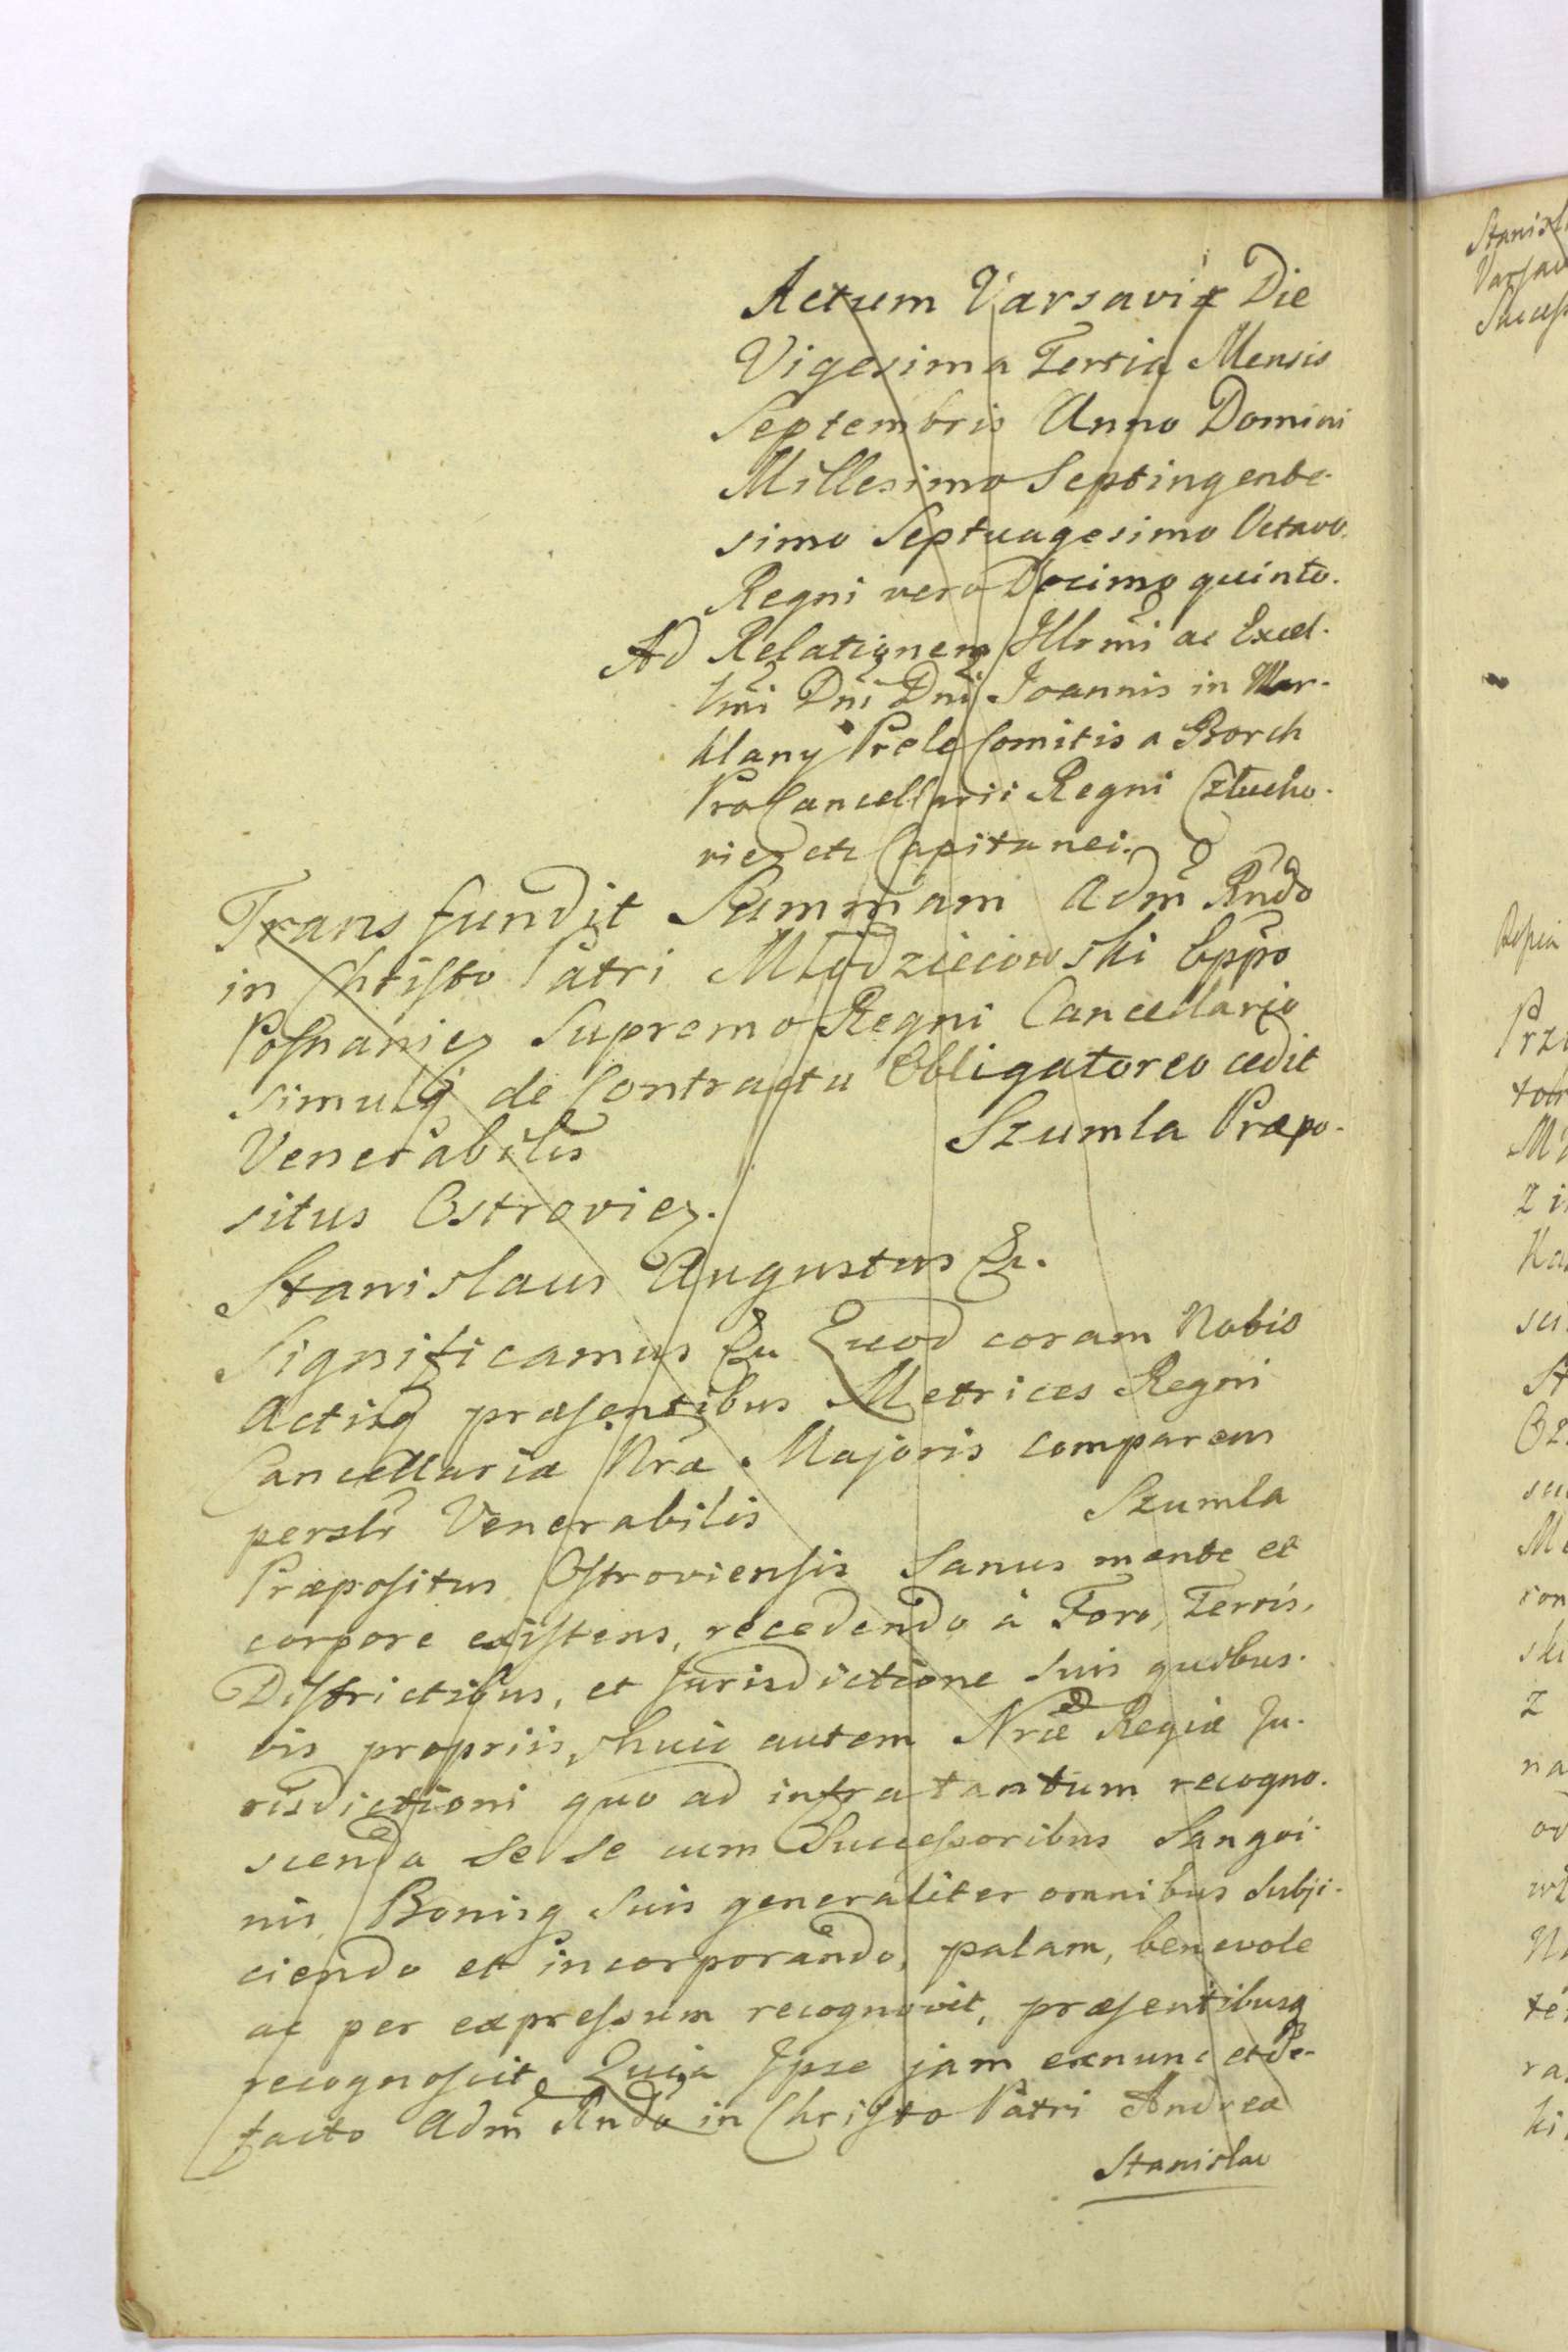 Actum Varsaviæ Die
Vigesima Tertia Mensis
Septembris Anno Domini
Millesimo Septingente-
simo Septuagesimo Octavo.
Regni vero Decimo quinto.
Ad Relationem Illrmi ac Excel-
lmi Dni Dni Joannis in War-
klany Prele Comitis a Borch
ProCancellarii Regni Człucho-
vien etc Capitanei.
Transfundit Summam Adm Rndo
in Christo Patri Młodzieiowski Eppo
Posnanien Supremo Regni Cancellario
simulq de Contractu Obligatoreo cedit
Venerabilis Szumla Præpo-
situs Ostrovien.
Stanislaus Augustus &c.
Significamus &c Quod coram Nobis
Actisq præsentibus Metrices Regni
Cancellariæ Nræ Majoris comparens
perslr Venerabilis Szumla
Præpositus Ostroviensis Sanus mente et
corpore existens, recedendo à Foro, Terris,
Districtibus, et Jurisdictione suis quibus-
vis propriis, huic autem Nræ Regiæ Ju-
risdictioni quo ad infra tantum recogno-
scenda se se cum Successoribus Sangvi-
nis, Bonisq suis generaliter omnibus subji-
ciendo et incorporando, palam, benevole
ac per expressum recognovit, præsentibusq
recognoscit, Quia Ipse jam exnunc et De-
facto Adm Rndo in Christo Patri Andreæ
Stanislao
Stanisl
Varsav
Success
Prze